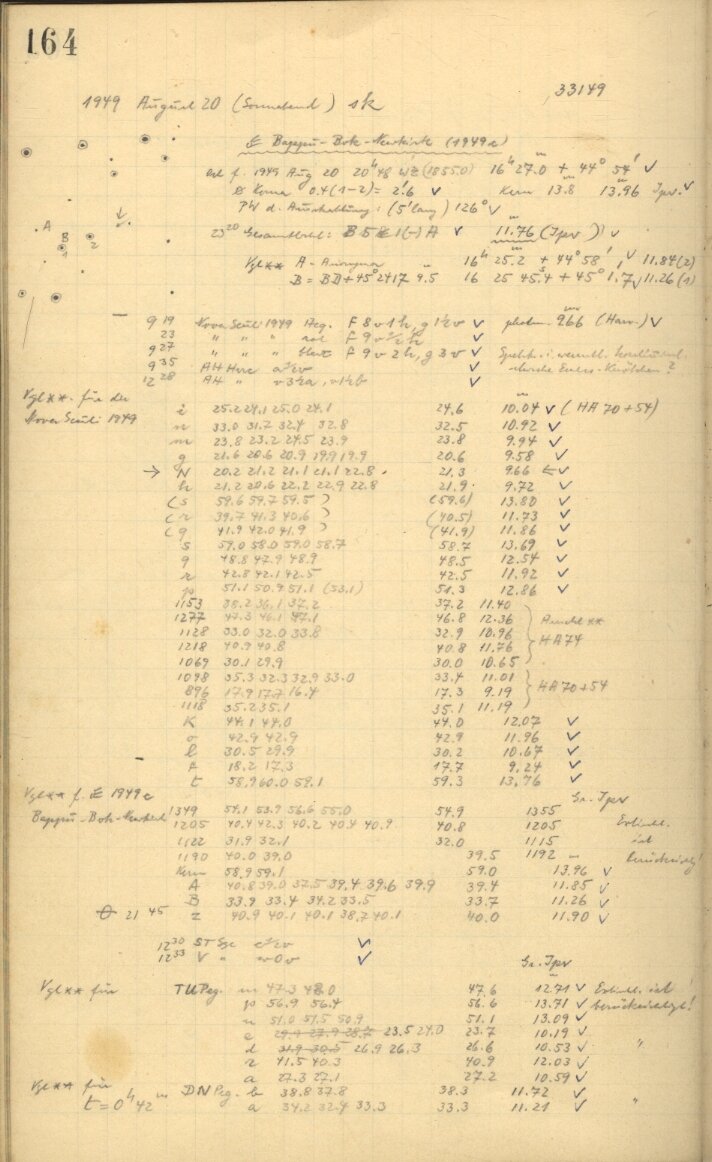 164
33149
1949 August 20 (Sonnabend) sk
Bappu-Bok-Newkirk (1949c)
f. 1949 Aug 20 20h48 WZ (1855.0) 16h 27.0 + 44° 54' ✓
Koma 0.4(1-2) = 2'.6 ✓ Kern 13.8 13.96 Ipv. ✓
PW d. (5' lang) 126° ✓
23 20 A ✓ 11.76 (Ipv) ✓
Vgl** A = Anonymus 16h 25.2 + 44° 58' ✓ 11.84(2)
B = BD+45°2417 9.5 16 25 45.4 + 45° 1.7 ✓ 11.26(1)
A
B
1
2
9 19 Nova 1949 Aqg. f 8 v 1 h, g 1/2 v ✓ photom. 966 (Harv.) ✓
23 " " " rot f 9 v 1/2 h ✓
9 27 " " " blau f 9 v 2 h, g 3 v ✓
9 35 AH Herc a 1/2 v ✓
12 28 AH " v 3 1/2 a, v 1/2 b ✓
Vgl** für die
Nova 1949
i 25.2 24.1 25.0 24.1 24.6 10.04 ✓ (HA 70+54)
n 33.0 31.7 32.4 32.8 32.5 10.92 ✓
m 23.8 23.2 24.5 23.9 23.8 9.94 ✓
g 21.6 20.6 20.9 19.9 19.9 20.6 9.58 ✓
→ N 20.2 21.2 21.1 21.1 22.8 21.3 966 ← ✓
h 21.2 20.6 22.2 22.9 22.8 21.9 9.72 ✓
(s 59.6 59.7 59.5) (59.6) 13.80 ✓
(r 39.7 41.3 40.6) (40.5) 11.73 ✓
(q 41.9 42.0 41.9) (41.9) 11.86 ✓
s 59.0 58.0 59.0 58.7 58.7 13.69 ✓
q 48.8 47.9 48.9 48.5 12.54 ✓
r 42.8 42.1 42.5 42.5 11.92 ✓
p 51.1 50.9 51.1 (53.1) 51.3 12.86 ✓
1153 38.2 36.1 37.2 37.2 11.40
1277 47.3 46.1 47.1 46.8 12.36 **
1128 33.0 32.0 33.8 32.9 10.96 HA74
1218 40.9 40.8 40.8 11.76
1069 30.1 29.9 30.0 10.65
1098 35.3 32.3 32.9 33.0 33.4 11.01
896 17.9 17.7 16.4 17.3 9.19 HA70+54
1118 35.2 35.1 35.1 11.19
K 44.1 44.0 44.0 12.07 ✓
o 42.9 42.9 42.9 11.96 ✓
l 30.5 29.9 30.2 10.67 ✓
f 18.2 17.3 17.7 9.24 ✓
t 58.9 60.0 59.1 59.3 13.76 ✓
Vgl** f. 1949c
Bappu-Bok-Newkirk
Gr. Ipv
1349 54.1 53.9 56.6 55.0 54.9 1355
1205 40.4 42.3 40.2 40.4 40.9 40.8 1205 Extinkt.
1122 31.9 32.1 32.0 1115 ist
1190 40.0 39.0 39.5 1192 berücksichtigt!
Kern 58.9 59.1 59.0 13.96 ✓
A 40.8 39.0 37.5 39.4 39.6 39.9 39.4 11.85 ✓
B 33.9 33.4 34.2 33.5 33.7 11.26 ✓
21 45 z 40.9 40.1 40.1 38.7 40.1 40.0 11.90 ✓
12 30 ST Sge c 1/2 v ✓
12 33 V " w 0 v ✓
Gr. Ipv
Vgl** für TU Peg. m 47.3 48.0 47.6 12.71 ✓ Extinkt. ist
p 56.9 56.4 56.6 13.71 ✓ berücksichtigt!
n 51.0 51.5 50.9 51.1 13.09 ✓
e 29.9 27.9 28.7 23.5 24.0 23.7 10.19 ✓
d 31.9 30.5 26.9 26.3 26.6 10.53 ✓ "
r 41.5 40.3 40.9 12.03 ✓
a 27.3 27.1 27.2 10.59 ✓
Vgl** für DN Peg. b 38.8 37.8 38.3 11.72 ✓
t = 0h 42m a 34.2 32.4 33.3 33.3 11.21 ✓ "